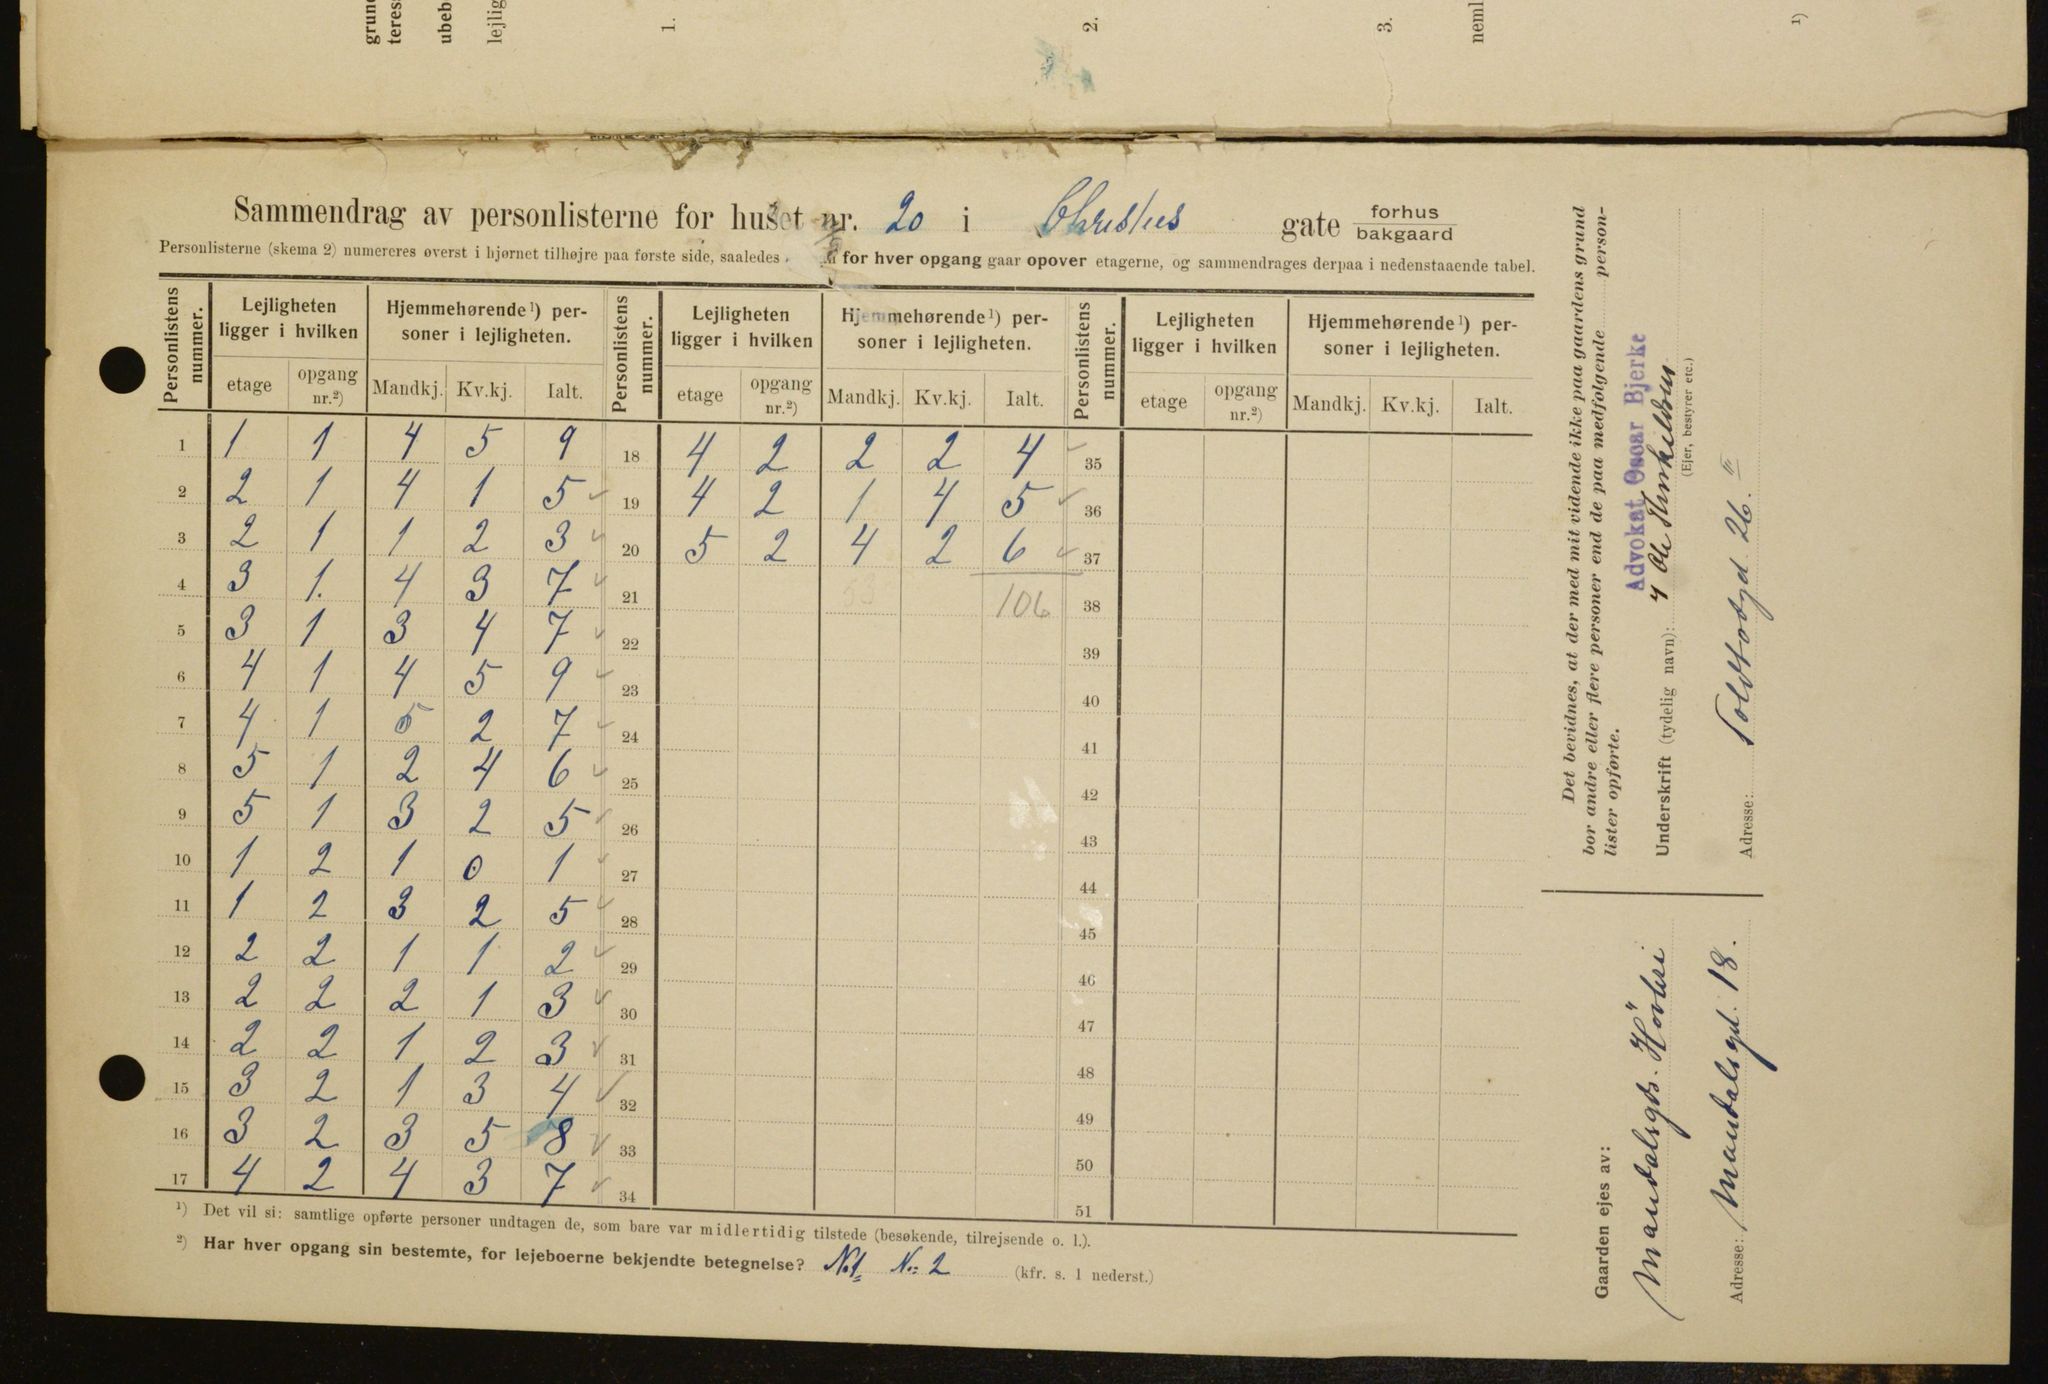 grund
teres
ubeb
lejlig
1.
2.
3.
neml
1)
Sammendrag av personlisterne for huset nr. 20 i Christies gate forhus
bakgaard
Personlisterne (skema 2) numereres øverst i hjørnet tilhøjre paa første side, saaledes for hver opgang gaar opover etagerne, og sammendrages derpaa i nedenstaaende tabel.
Personlistens nummer. Lejligheten ligger i hvilken Hjemmehørende¹) personer i lejligheten. Personlistens nummer. Lejligheten ligger i hvilken Hjemmehørende¹) personer i lejligheten. Personlistens nummer. Lejligheten ligger i hvilken Hjemmehørende¹) personer i lejligheten.
etage opgang nr.²) Mandkj. Kv.kj. Ialt. etage opgang nr.²) Mandkj. Kv.kj. Ialt. etage opgang nr.²) Mandkj. Kv.kj. Ialt.
1 1 1 4 5 9 18 4 2 2 2 4 35
2 2 1 4 1 5 19 4 2 1 4 5 36
3 2 1 1 2 3 20 5 2 4 2 6 37
4 3 1. 4 3 7 21 106 38
5 3 1 3 4 7 22 39
6 4 1 4 5 9 23 40
7 4 1 5 2 7 24 41
8 5 1 2 4 6 25 42
9 5 1 3 2 5 26 43
10 1 2 1 0 1 27 44
11 1 2 3 2 5 28 45
12 2 2 1 1 2 29 46
13 2 2 2 1 3 30 47
14 2 2 1 2 3 31 48
15 3 2 1 3 4 32 49
16 3 2 3 5 8 33 50
17 4 2 4 3 7 34 51
¹) Det vil si: samtlige opførte personer undtagen de, som bare var midlertidig tilstede (besøkende, tilrejsende o. l.).
²) Har hver opgang sin bestemte, for lejeboerne bekjendte betegnelse? No 1 No: 2 (kfr. s. 1 nederst.)
Det bevidnes, at der med mit vidende ikke paa gaardens grund
bor andre eller flere personer end de paa medfølgende personlister
lister opførte.
Advokat Oscar Bjerke
Underskrift (tydelig navn): Ole Thorkildsen
(Ejer, bestyrer etc.)
Adresse: Toldbodgd 26. III
Gaarden ejes av:
Mandalsgds.
Adresse: Mandalsgd. 18.